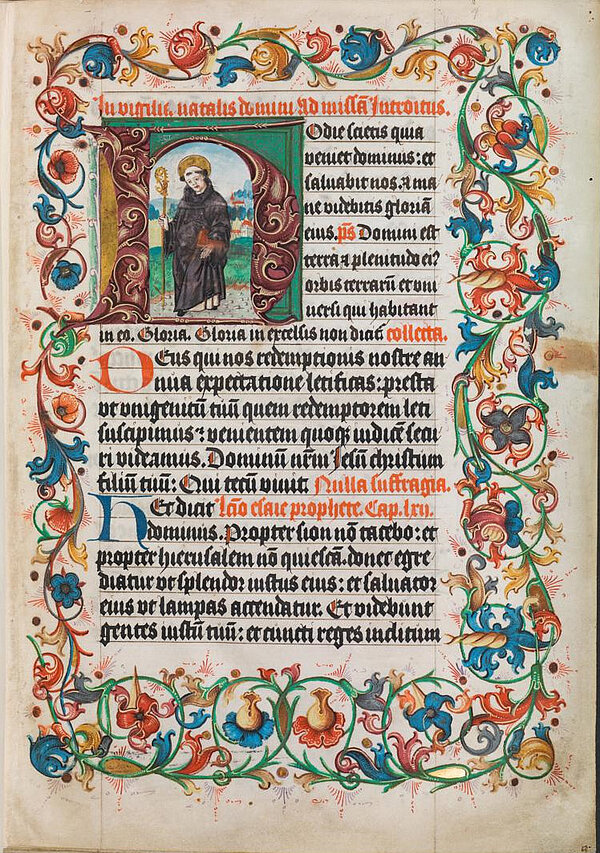 In vigilia natalis domini Ad missã Introitus.
HOdie scietis quia
veniet dominus: et
saluabit nos. ⁊ ma
ne videbitis gloriã
eius. p̃s Domini est
terra ⁊ plenitudo ei⁹
orbis terrarũ et vni
uersi qui habitant
in eo. Gloria. Gloria in excelsis non dicit̃ collecta.
DEus qui nos redemptionis nostre an
nua expectatione letificas: presta
vt vnigenitũ tuũ quem redemptorem leti
suscipimus: venientem quoqꝫ iudicẽ secu
ri videamus. Dominũ nr̃m Jesũ christum
filiũ tuũ: Qui tecũ viuit. Nulla suffragia.
HEc dicit lc̃io esaie prophete. Cap. lxii.
dominus. Propter sion nõ tacebo: et
propter hierusalem nõ quiescã. donec egre
diatur vt splendor iustus eius: et saluator
eius vt lampas accendatur. Et videbunt
gentes iustũ tuũ: et cuncti reges inclitum